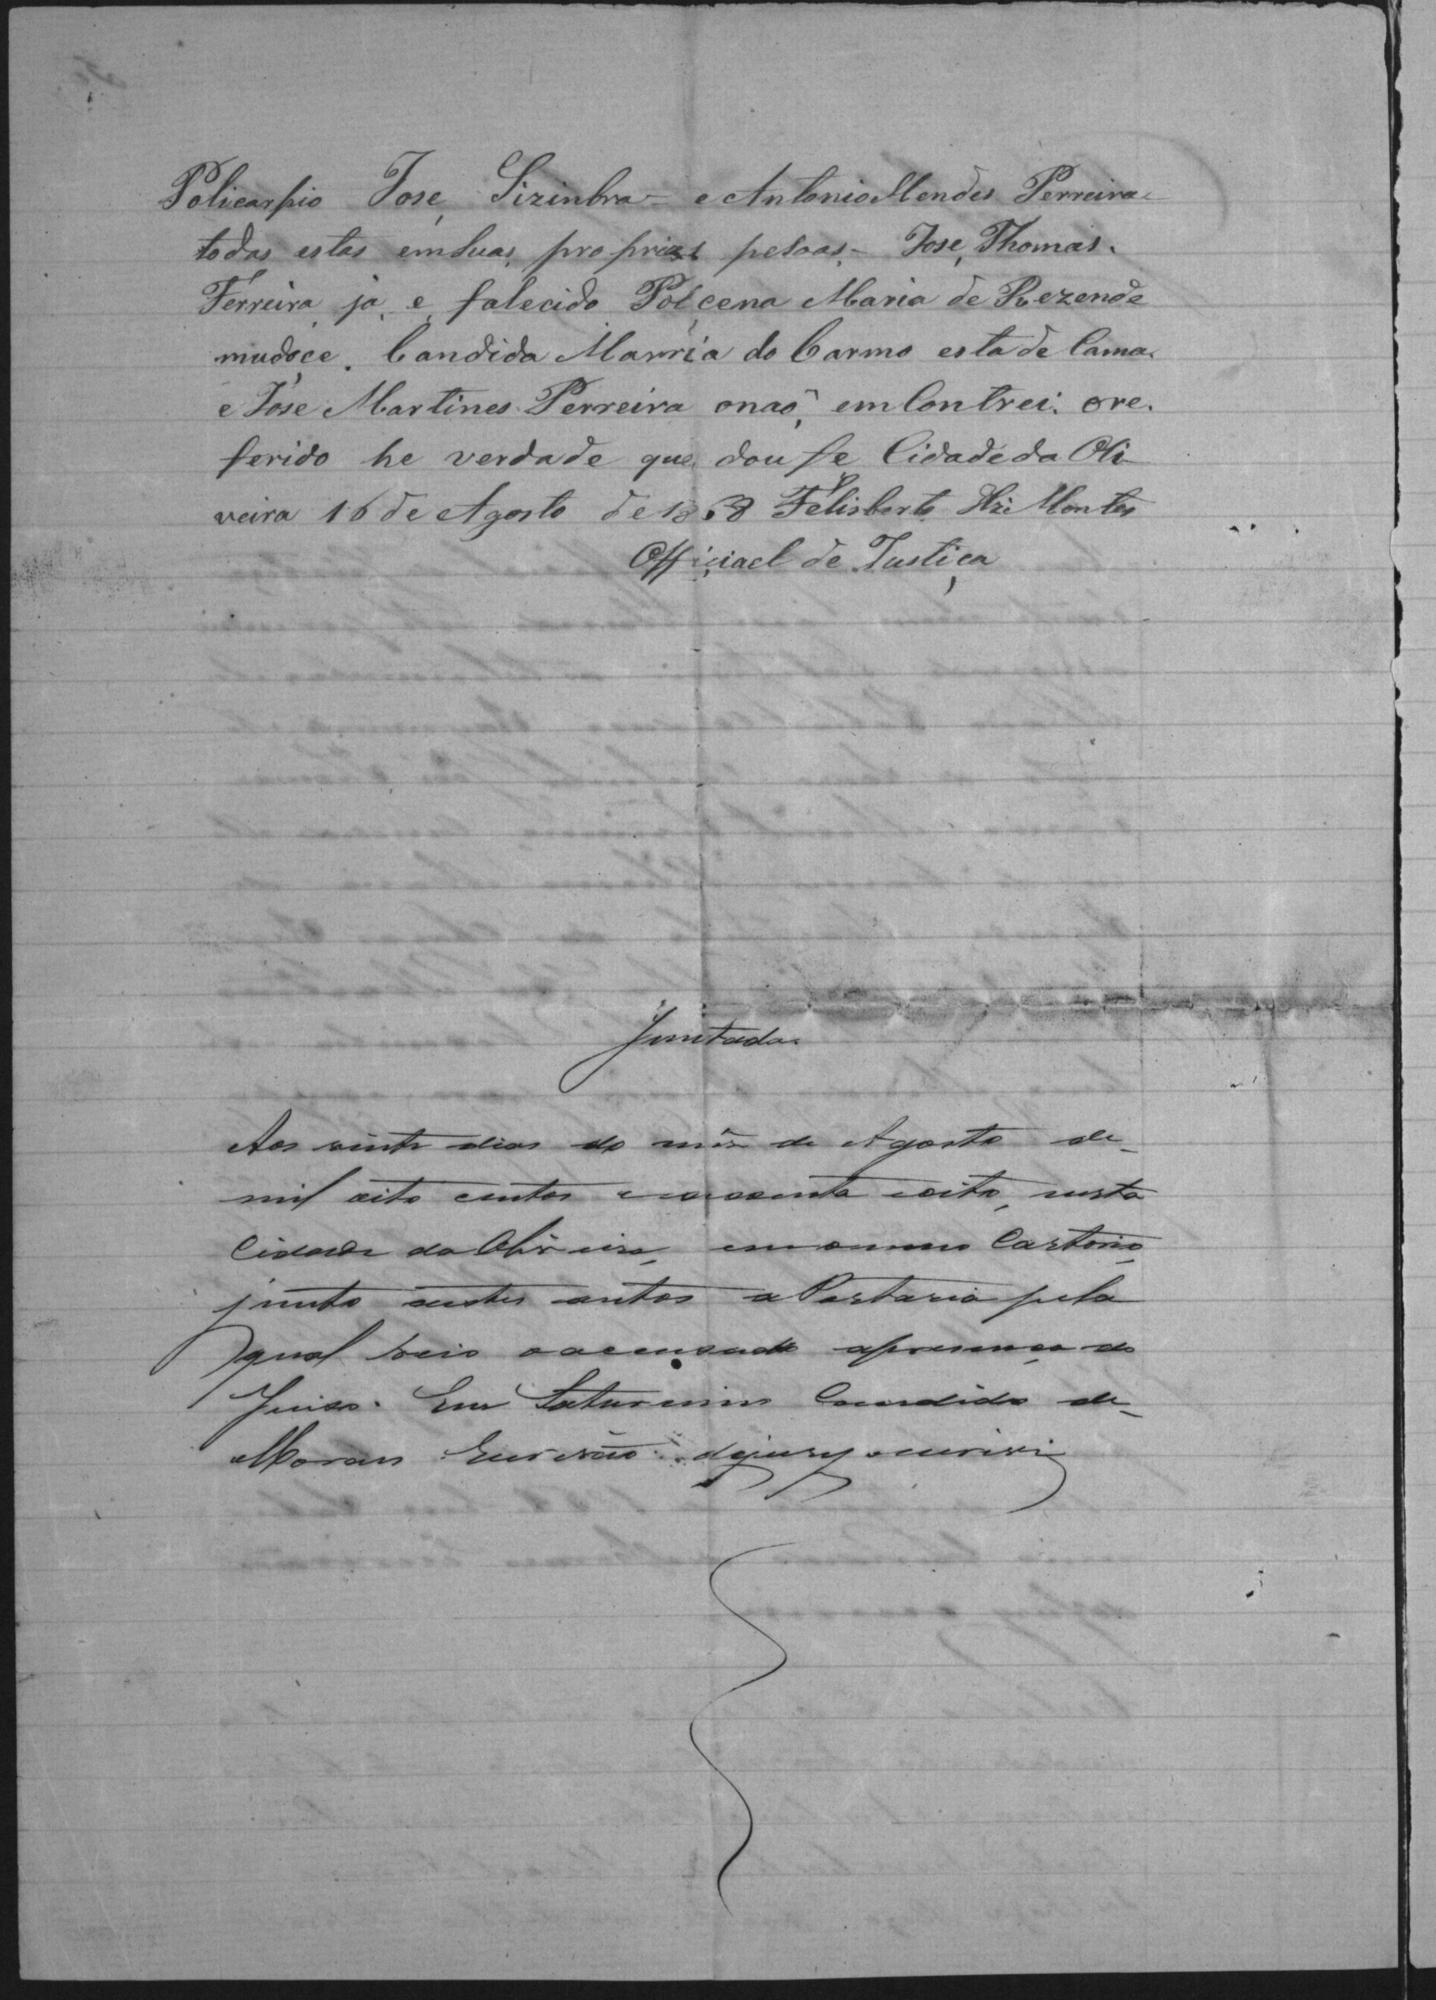 Policarpio Jose, Sizinbra - e Antonio Mendes Perreira
todas estas em suas, proprias pesoas - Jose, Thomas.
Ferreira ja, e, falecido Polcena Maria de Rezende
mudoce. Candida Marria do Carmo esta de Cama.
e Jose Martines Perreira onaõ, em Contrei. ore.
ferido he verdade que dou fe Cidade da Oli
veira 16 de Agosto de 1868 Felisberto Montes
Officiael de Justiça
Juntada.
Aos vinte dias do mês de Agosto de
mil oito centos e sessenta e oito, nesta
Cidade da Oliveira, em o meu Cartorio,
junto a estes autos a Portaria pela
qual veio o accusado a presença do
Juiso. Eu Saturnino Candido de
Moraes Escrivão do jury o escrivi